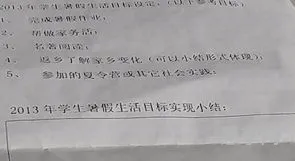 2013年学生暑假生活目标设定:(以下参考目标)
1、完成暑假作业;
2、帮做家务活;
3、名著阅读;
4、返乡了解家乡变化(可以小结形式体现);
5、参加的夏令营或其它社会实践;
2013年学生暑假生活目标实现小结: